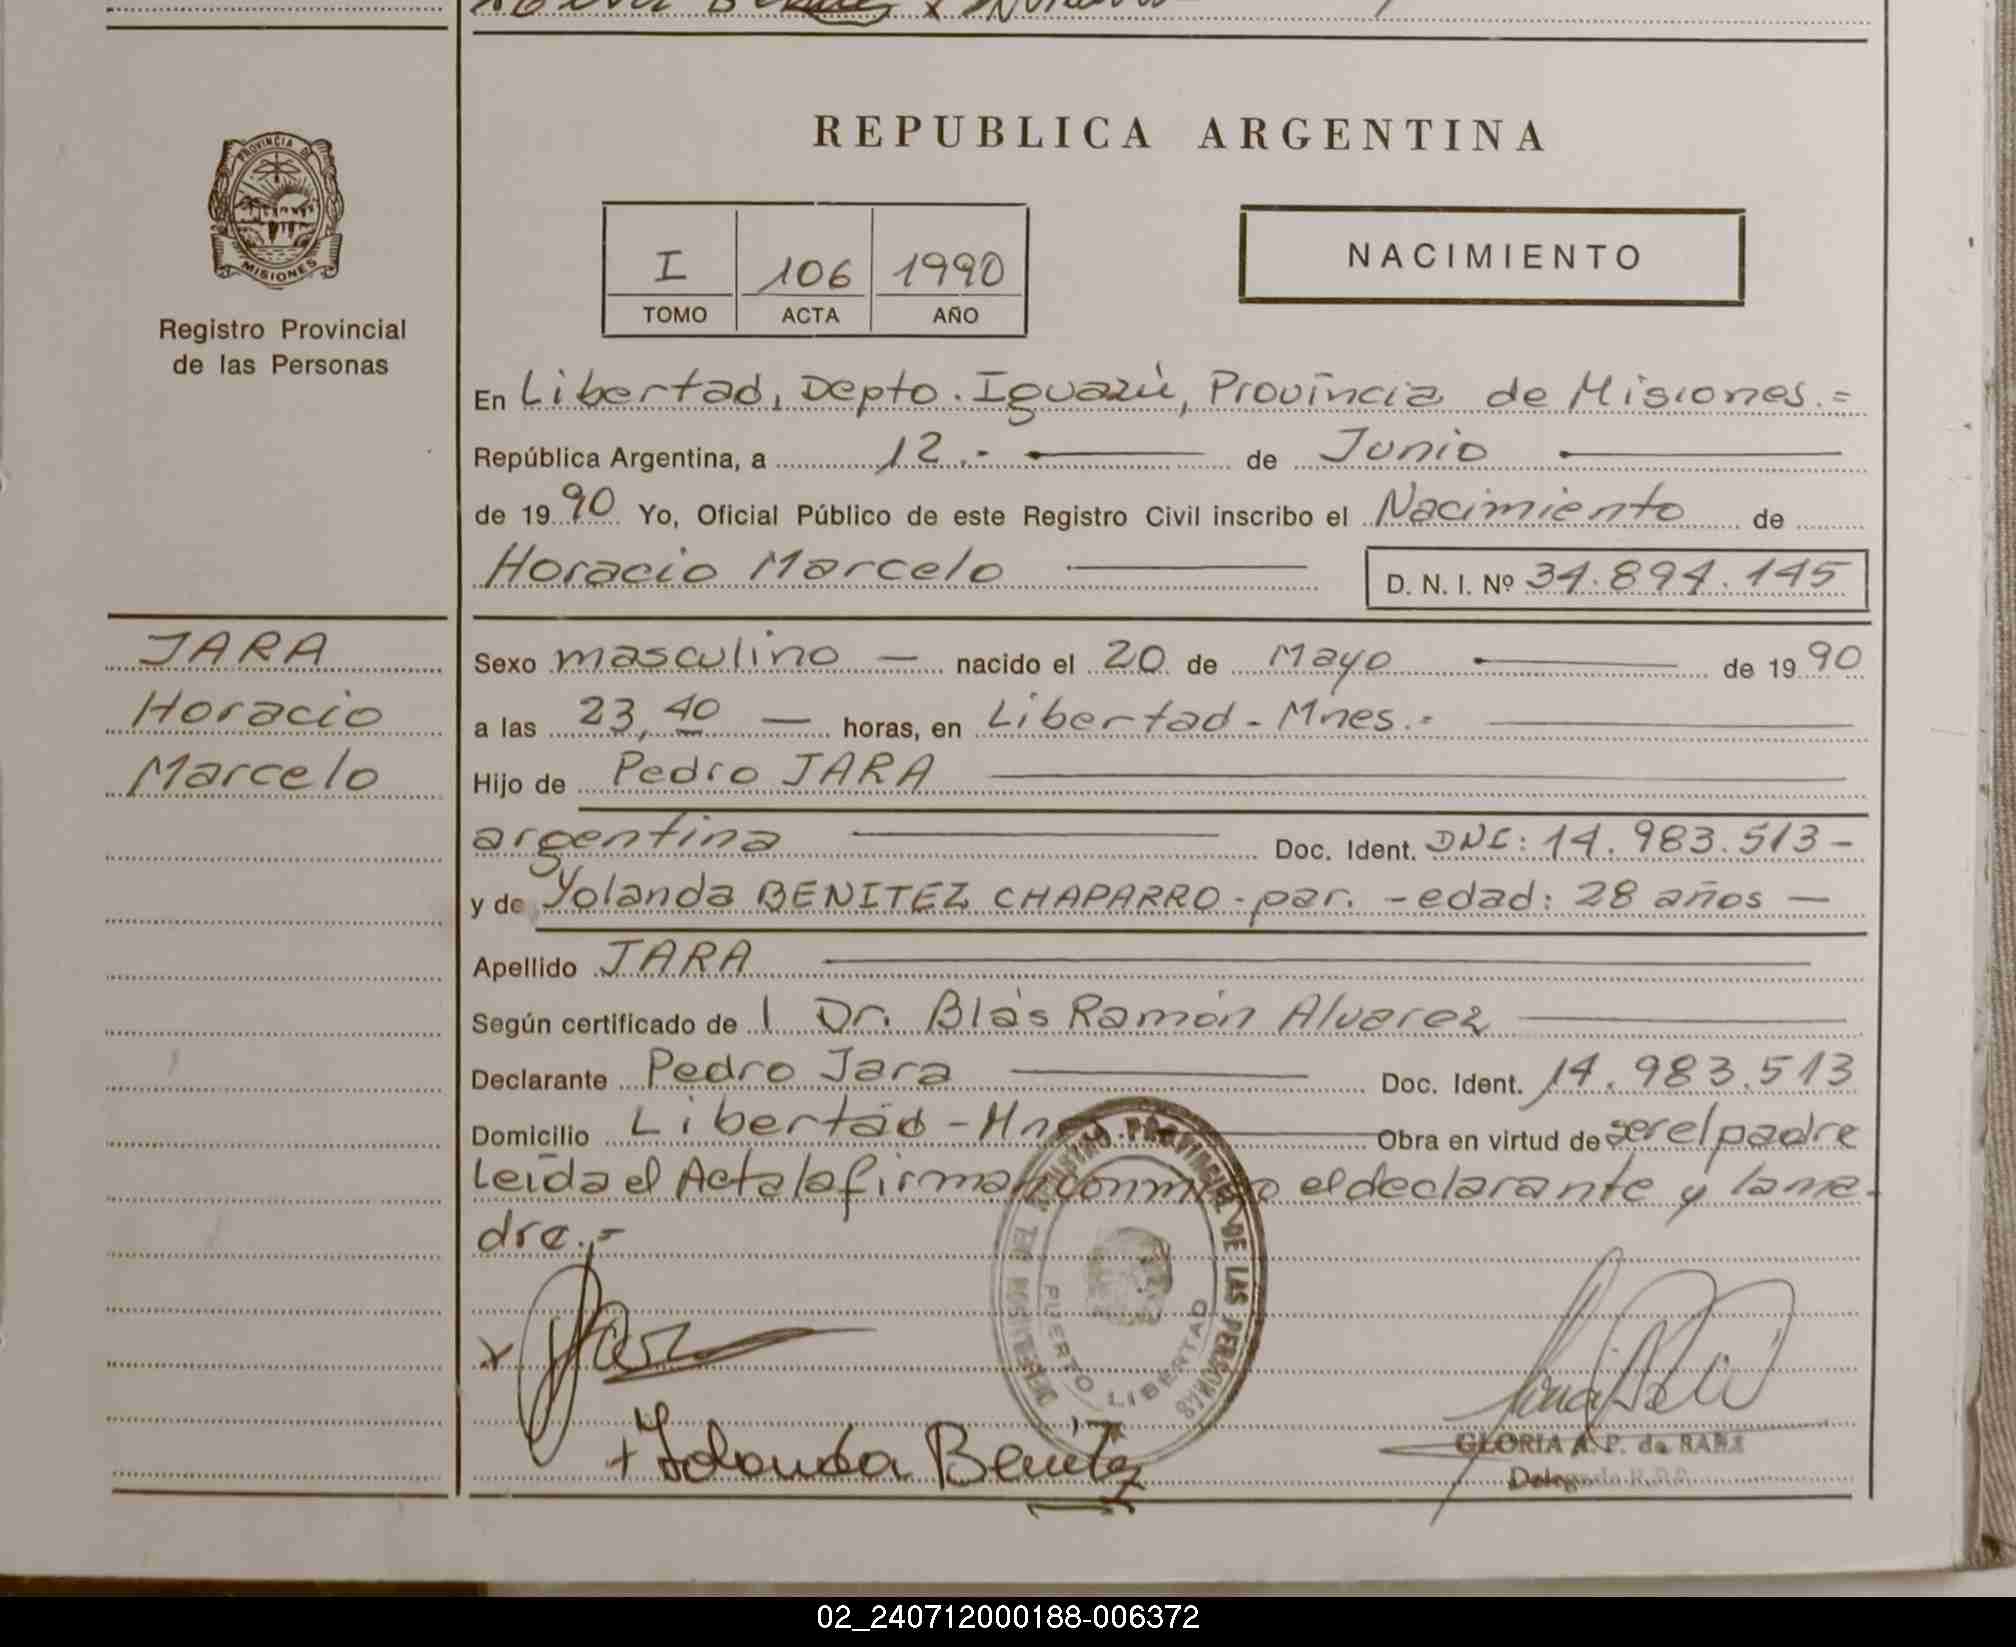 PROVINCIA DE
MISIONES
Registro Provincial
de las Personas
REPUBLICA ARGENTINA
I 106 1990
TOMO ACTA AÑO
NACIMIENTO
En Libertad, Depto. Iguazú, Provincia de Misiones.=
República Argentina, a 12.- de Junio
de 1990 Yo, Oficial Público de este Registro Civil inscribo el Nacimiento de
Horacio Marcelo D. N. I. Nº 34.894.145
JARA
Horacio
Marcelo
Sexo masculino — nacido el 20 de Mayo de 1990
a las 23,40 — horas, en Libertad - Mnes.-
Hijo de Pedro JARA
argentina Doc. Ident. DNI: 14.983.513-
y de Yolanda BENITEZ CHAPARRO - par. - edad: 28 años —
Apellido JARA
Según certificado de l Dr. Blás Ramón Alvarez
Declarante Pedro Jara Doc. Ident. 14.983.513
Domicilio Libertad - Obra en virtud de ser el padre
Leída el Acta la firman conmigo el declarante y la ma-
dre.-
REGISTRO PROVINCIAL DE LAS PERSONAS
PUERTO LIBERTAD
x Jara
+ Yolanda Benitez
GLORIA A. P. de
02_240712000188-006372